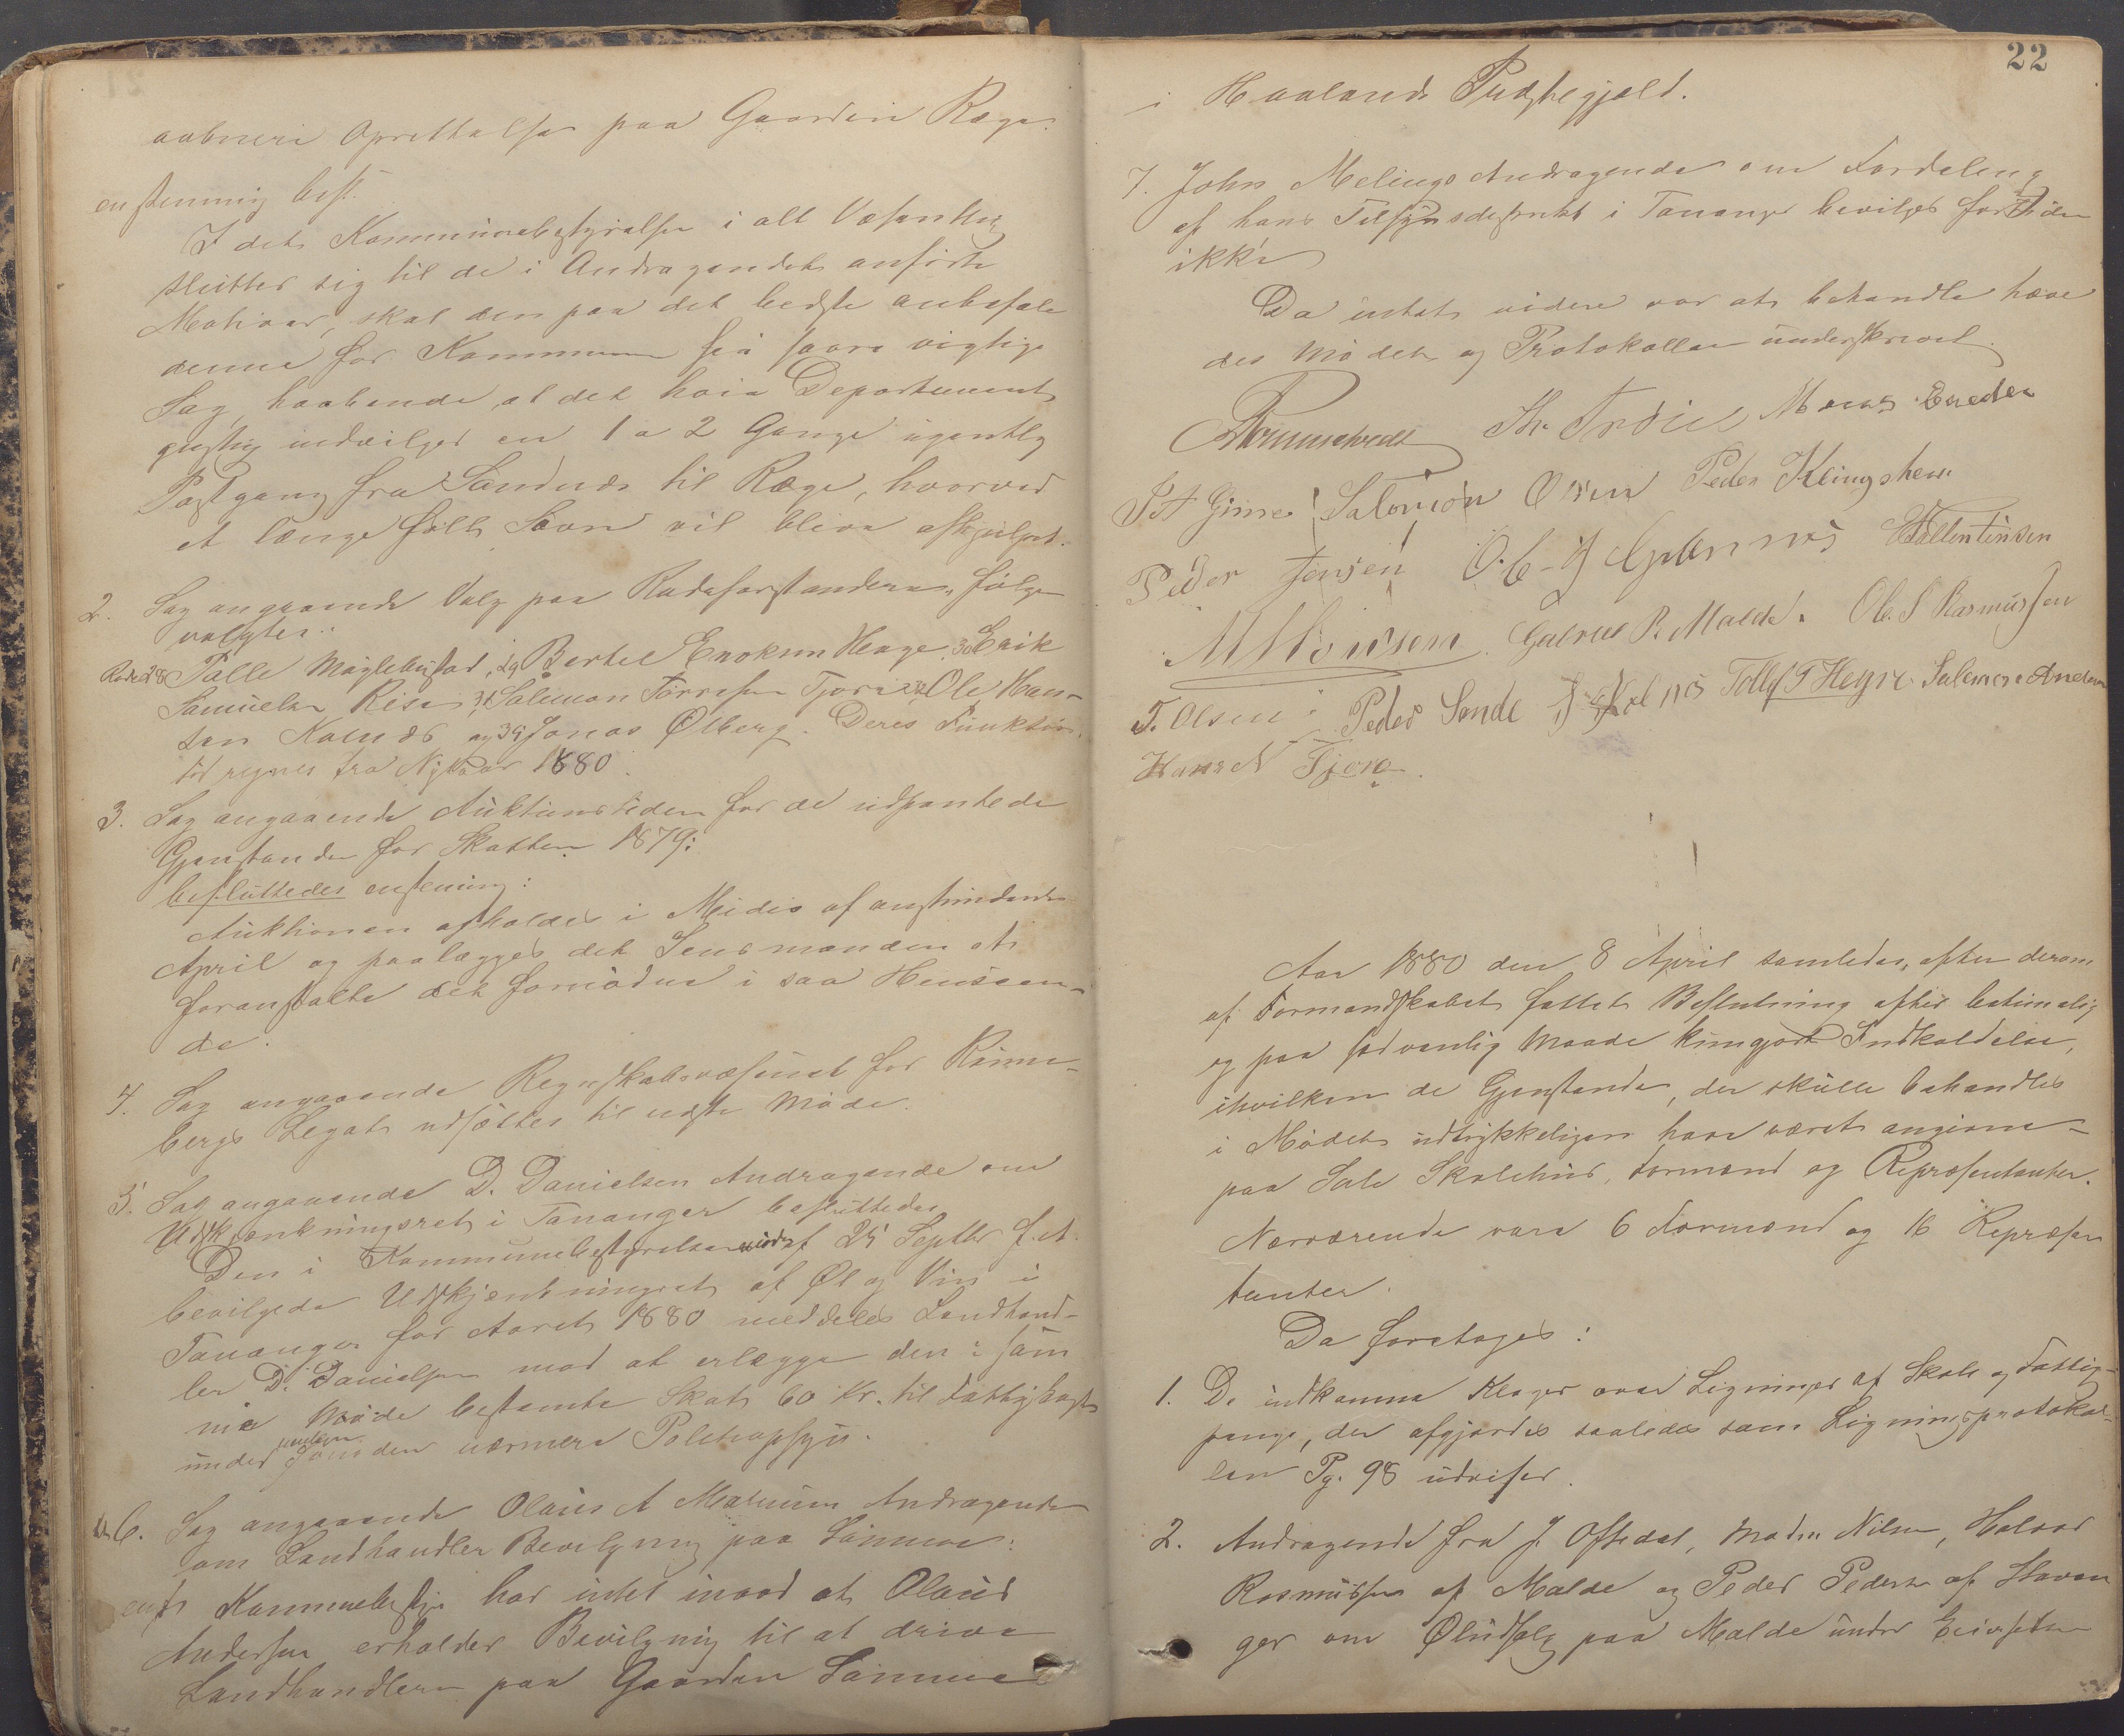 aabneri Oprettelse paa Gaarden Ræge
enstemmig besl.
I det Kommunebestyrelsen i alt Væsentlig
slutter sig til de i Andragendet anførte
Motiver, skal den paa det bedste anbefale
denne for Kommunen saa svare vigtige
Sag, haabende at det høie Departement
gunstig indvilger en 1 a 2 Gange ugentlig
Postgang fra Sandnæs til Ræge, hvorved
et længe følt Savn vil blive afhjulpet.
2. Sag angaaende Valg paa Rodeforstandere, følge
valgtes:
Rode 28 Talle Møglebustad, 29 Bertel Enoksen Hauge 30 Erik
Samuelsen Risa, 31 Salomon Tørresen Tjora 32 Ole Han-
sen Kolnæs og 39 Jonas Ølberg. Deres Funktions
tid regnes fra Nytaar 1880.
3. Sag angaaende Auktionstiden for de udpantede
Gjenstande for Skatten 1879:
besluttedes enstemig:
Auktionen afholdes i Medio af anstundende
April og paalægges det Lensmanden at
foranstalte det fornødne i saa Henseen-
de.
4. Sag angaaende Regnskabsvæsenet for Rønne-
bergs Legat udsættes til næste Møde.
5. Sag angaaende D. Danielsen Andragende om
Udskjænkningsret i Tananger besluttedes
Den i Kommunebestyrelsesmøde af 25 Septbr f. A.
bevilgede Udskjænkningsret af Øl og Vin i
Tananger for Aaret 1880 meddeles Landhand-
ler D. Danielsen mod at erlægge den i sam
me Møde bestemte Skat 60 Kr. til Fattigkassen
under den nærmere Politiopsyn.
6. Sag angaaende Olaus A Andragende
om Landhandler Bevilgning paa Sømme:
enst Kommunebestyr har intet imod at Olaus
Andersen erholder Bevilgning til at drive
Landhandleri paa Gaarden Sømme
22
i Haalands Præstegjeld.
7. John Melings Andragende om Fordeling
af hans Tilsynsdistrikt i Tananger bevilges for Tiden
ikke
Da intet videre var at behandle hæve
des Mødet og Protokollen underskrevet.
Th. Tröien Mons Eneden
P A Gimre Salomon Olsen Peder Klingsheim
Peder Jensen O. C. J Grannes H Vallentinsen
M Monsen Gabriel P. Malde. Ole. S Rasmussen
T. Olsen Peder Sande J Kolnes Tollef T Heyre Salemon Andersen
Hans N Tjora
Aar 1880 den 8 April samledes, efter derom
af Formandskabet fattet Beslutning efter betimelig
og paa sædvanlig Maade kundgjort Indkaldelse,
ihvilken de Gjenstande, der skulle behandles
i Mødet udtrykkeligen have været angivne
paa Sole Skolehus, Formænd og Repræsentanter.
Nærværende vare 6 Formænd og 16 Repræsen
tanter.
Da foretages:
1. De indkomne Klager over Ligninger af Skole og Fattig-
penge, der afgjordes saaledes som Ligningsprotokol-
len Pg. 98 udviser.
2. Andragende fra J. Oftedal, Mads Nilsen, Halvor
Rasmussen af Malde og Peder Pedersen af Stavan
ger om Øludsalg paa Malde under